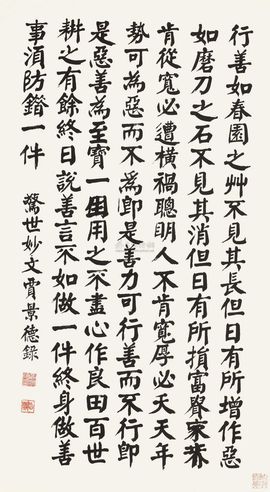 行善如春園之艸不見其長但日有所增作惡
如磨刀之石不見其消但日有所損富貴家不
肯從寬必遭橫禍聰明人不肯寬厚必夭天年
勢可為惡而不為即是善力可行善而不行即
是惡善為至寶一用之不盡心作良田百世
耕之有餘終日說善言不如做一件終身做善
事須防錯一件
驚世妙文賈景德錄